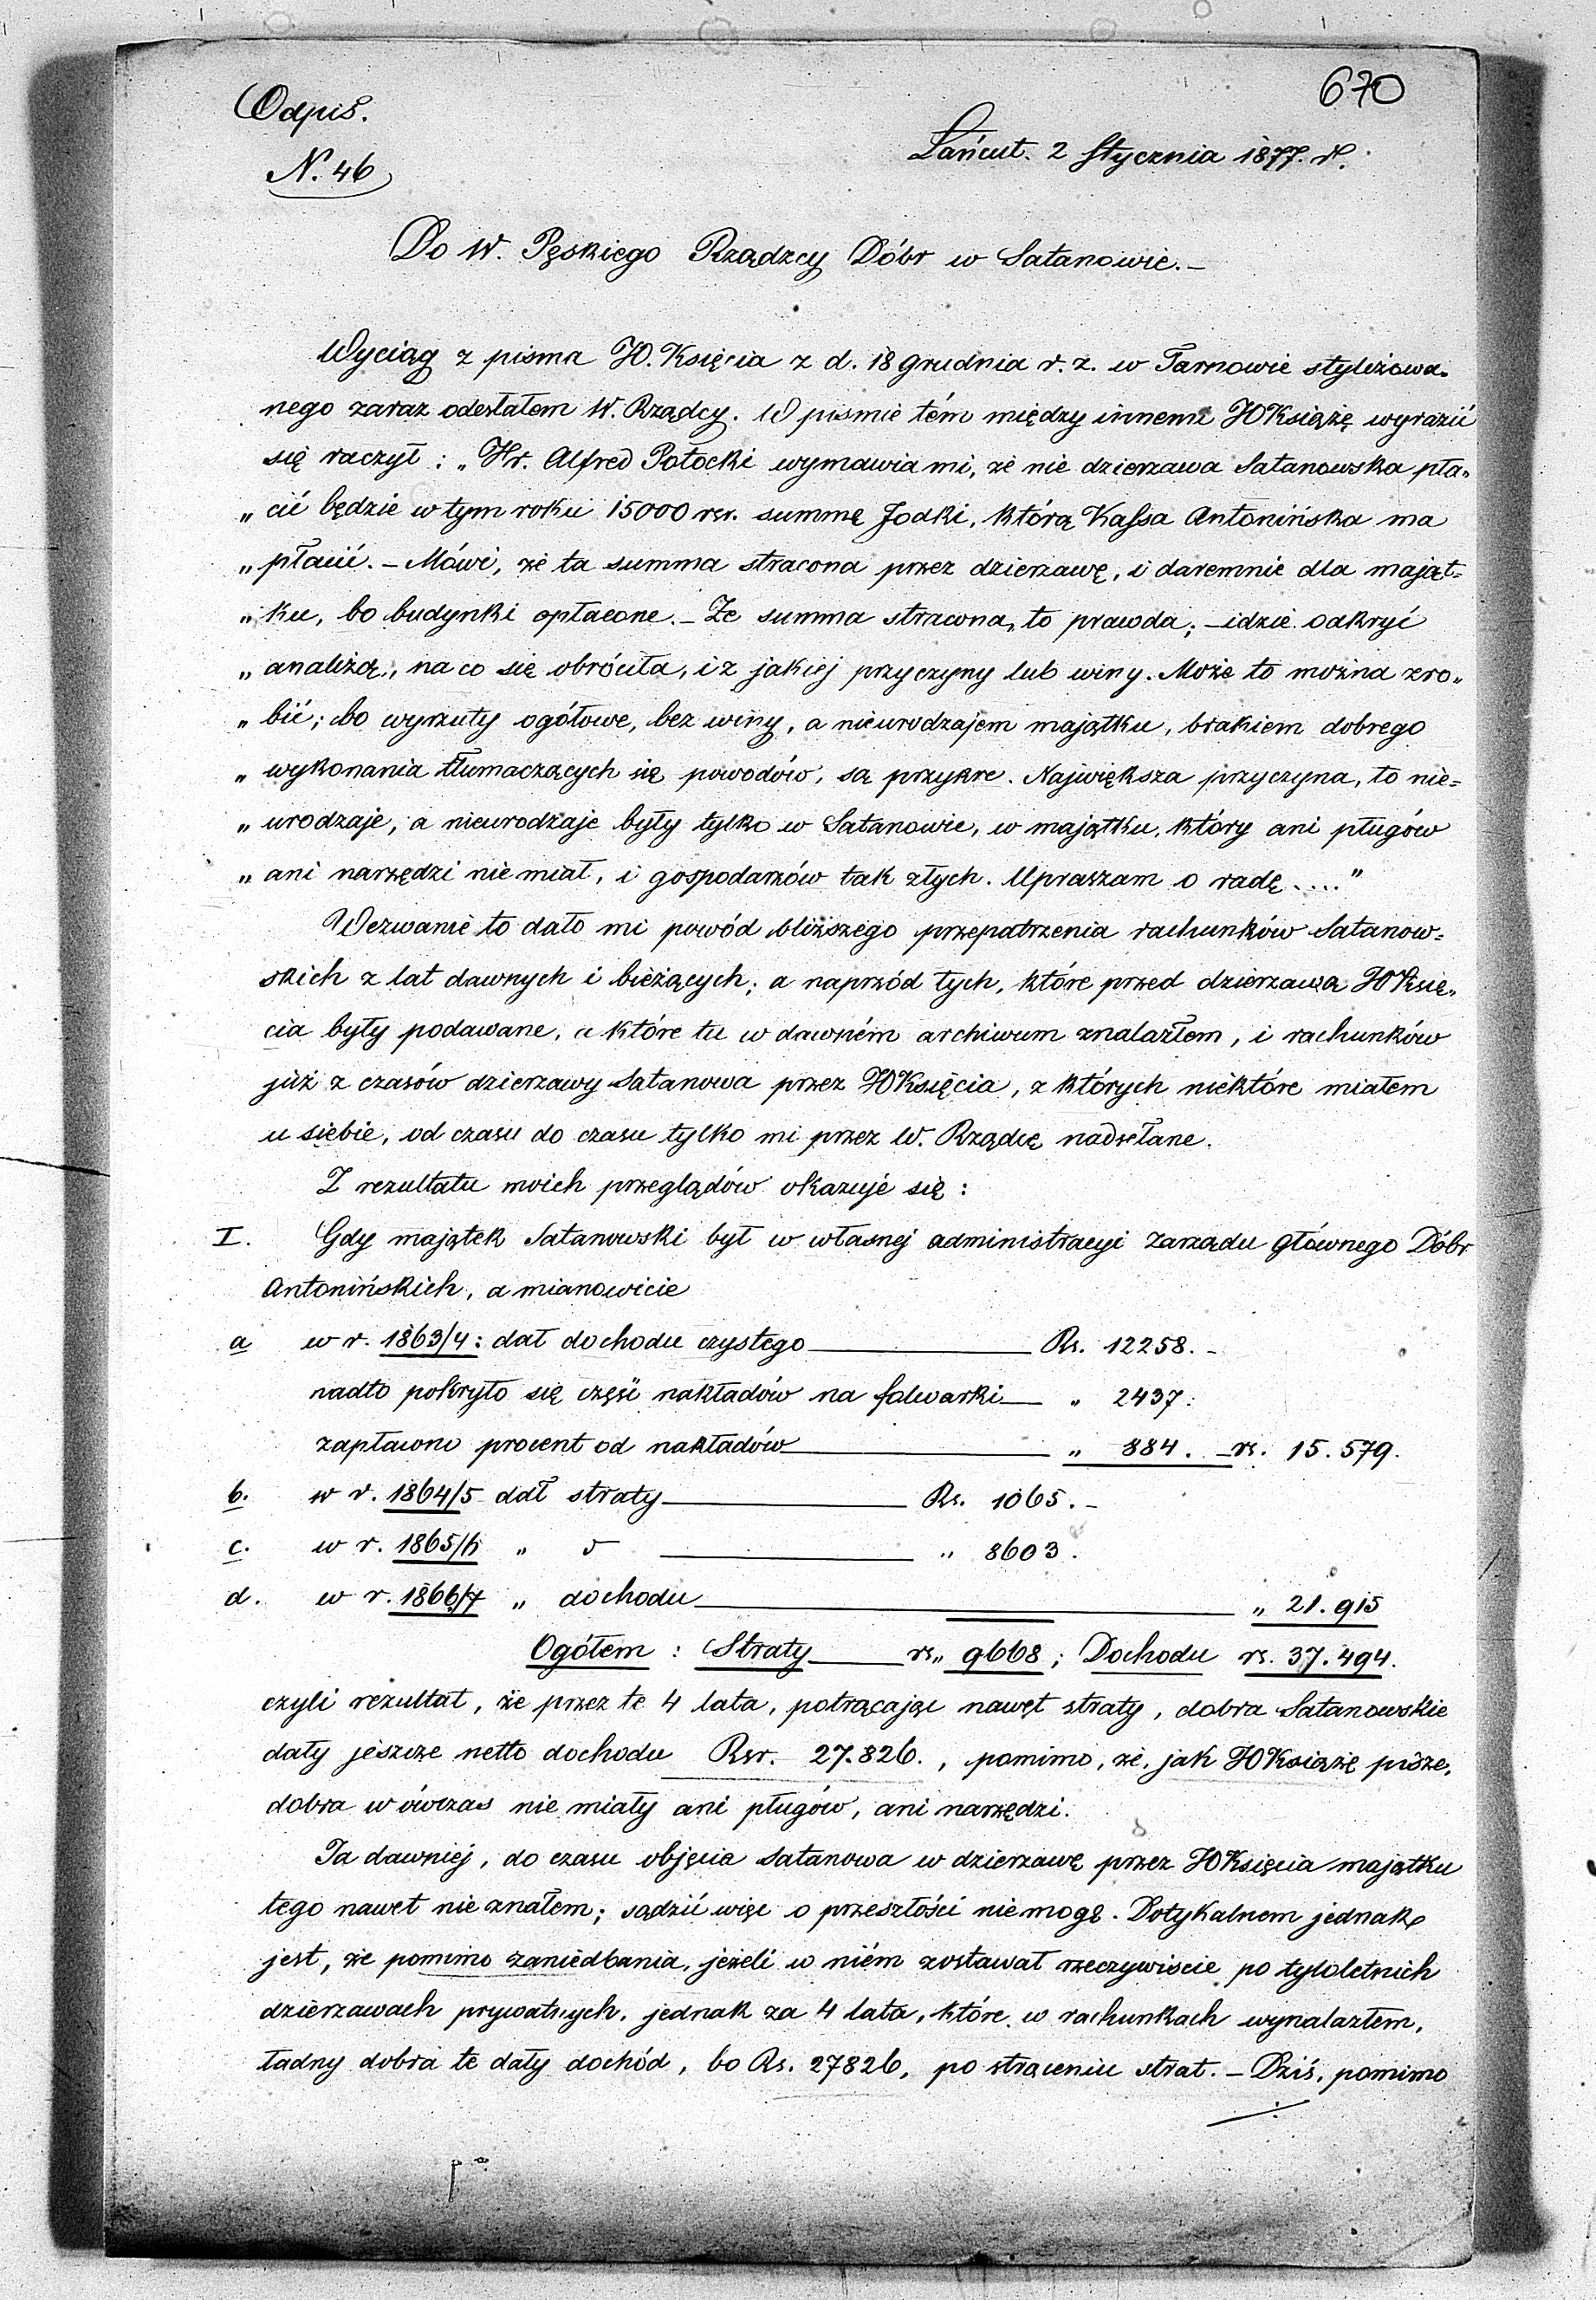 670
Odpis.
N. 46
Łańcut. 2 Stycznia 1877. r.
Do W. Pęskiego Rządzcy Dóbr w Satanowie. –
Wyciąg z pisma JO. Księcia z d. 18 grudnia r. z. w Tarnowie stylizowa-
nego zaraz odesłałem W. Rządcy. W pismie tém między innemi JOKsiążę wyrazić
się raczył : „Hr. Alfred Potocki wymawia mi, że nie dzierzawa Satanowska pła„
„ cić będzie w tym roku 15000 rsr. summę Jodki, którą Kassa Antonińska ma
„ płacić. – Mówi, że ta summa stracona przez dzierzawę, i daremnie dla mająt=
„ ku, bo budynki opłacone. – Że summa stracona, to prawda; – idzie odkryć
„ analizą, na co się obróciła, i z jakiej przyczyny lub winy. Może to można zro„
„ bić; bo wyrzuty ogółowe, bez winy, a nieurodzajem majątku, brakiem dobrego
„ wykonania tłumaczących się powodów, są przykre. Największa przyczyna, to nie=
„ urodzaje, a nieurodzaje były tylko w Satanowie, w majątku, który ani pługów
„ ani narzędzi nie miał, i gospodarzów tak złych. Upraszam o radę ...."
Wezwanie to dało mi powód bliższego przepatrzenia rachunków Satanow=
skich z lat dawnych i bieżących; a naprzód tych, które przed dzierzawą JOKsię„
cia były podawane, a które tu w dawném archiwum znalazłem, i rachunków
już z czasów dzierzawy Satanowa przez JOKsięcia, z których niektóre miałem
u siebie, od czasu do czasu tylko mi przez W. Rządcę nadsełane.
Z rezultatu moich przeglądów okazuje się :
I. Gdy majątek Satanowski był w własnej administracyi Zarządu głównego Dóbr
Antonińskich, a mianowicie
a w r. 1863/4 : dał dochodu czystego Rs. 12258. –
nadto pokryto się część nakładów na folwarki „ 2437 :
zapłacono procent od nakładów „ 884. – rs. 15.579.
b. w r. 1864/5 dał straty Rs. 1065. –
c. w r. 1865/6 „ „ 8603.
d. w r. 1866/7 „ dochodu „ 21.915
Ogółem : Straty rs„ 9668 ; Dochodu rs. 37.494.
czyli rezultat, że przez te 4 lata, potrącając nawet straty, dobra Satanowskie
dały jeszcze netto dochodu Rsr. 27.826. , pomimo, że, jak JOKsiążę pisze,
dobra wówczas nie miały ani pługów, ani narzędzi.
Ja dawniej, do czasu objęcia Satanowa w dzierzawę przez JOKsięcia majątku
tego nawet nie znałem; sądzić więc o przeszłości nie mogę. Dotykalnem jednak
jest, że pomimo zaniedbania, jeżeli w niém zostawał rzeczywiscie po tyloletnich
dzierzawach prywatnych, jednak za 4 lata, które w rachunkach wynalazłem,
ładny dobra te dały dochód, bo Rs. 27826, po strąceniu strat. – Dziś, pomimo